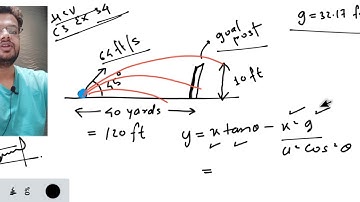 HCV
C3 Ex 34
g = 32.17 f
64 ft/s
goal
post
45°
10 ft
40 yards
= 120 ft
y = x tanθ - x² g
u² cos² θ
=